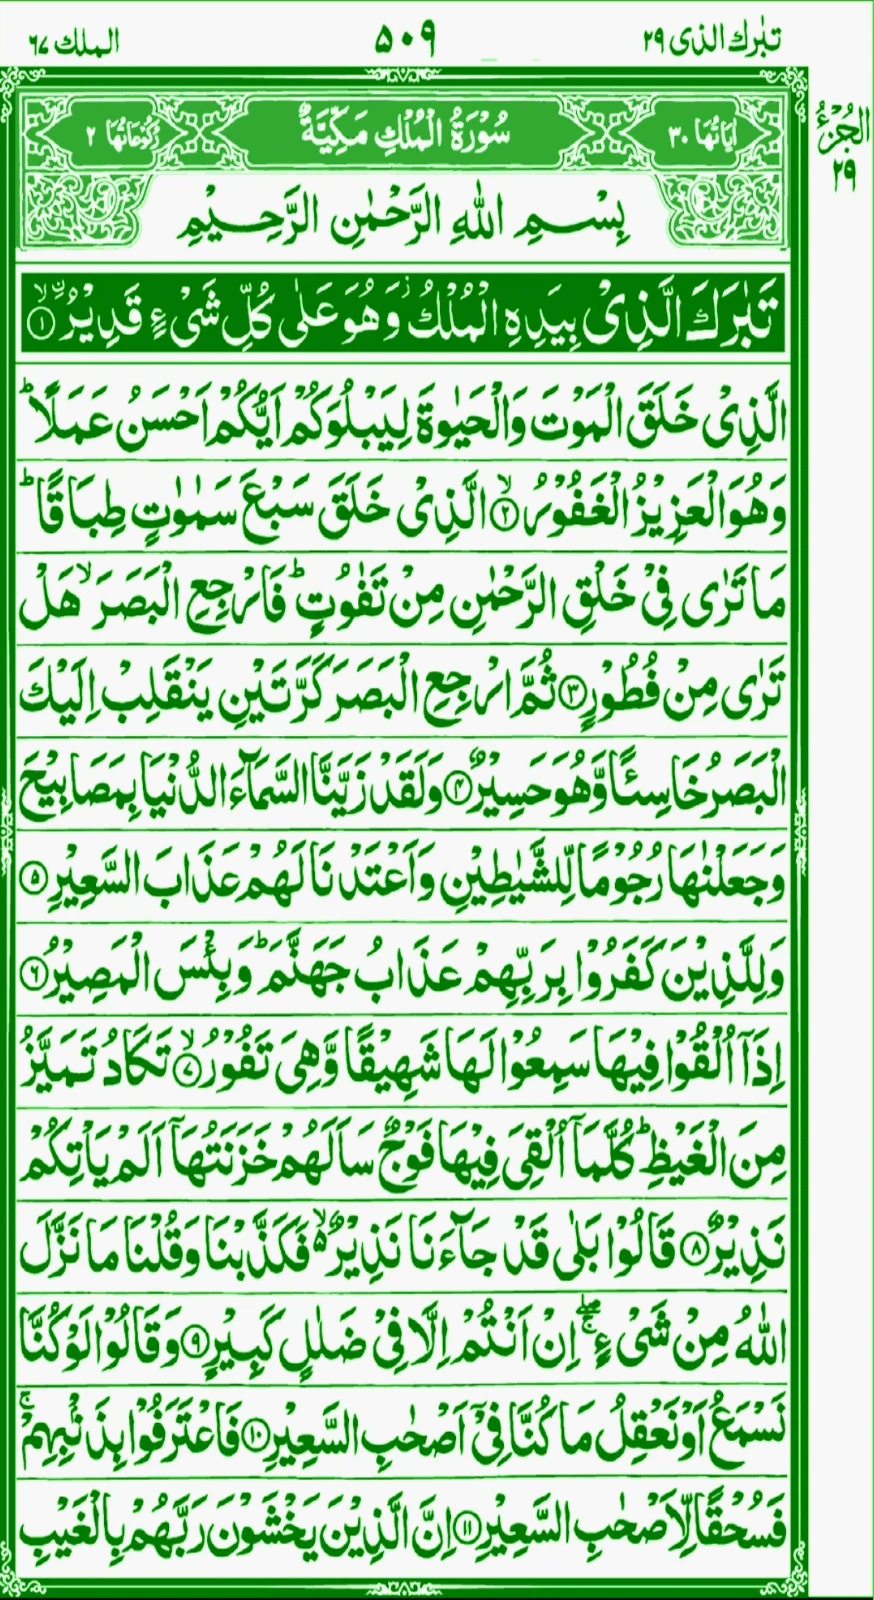 تبٰرك الذی ۲۹
۵۰۹
الملك ۶۷
الجُزءُ
۲۹
اٰیَاتُهَا ۳۰
سُوْرَةُ الْمُلْكِ مَكِّیَّةٌ
رُكُوْعَاتُهَا ۲
بِسْمِ اللّٰهِ الرَّحْمٰنِ الرَّحِیْمِ
تَبٰرَكَ الَّذِیْ بِیَدِهِ الْمُلْكُ ؗ وَهُوَ عَلٰی كُلِّ شَیْءٍ قَدِیْرُ ۙ﴿۱﴾
الَّذِیْ خَلَقَ الْمَوْتَ وَالْحَیٰوةَ لِیَبْلُوَكُمْ اَیُّكُمْ اَحْسَنُ عَمَلًا ؕ
وَهُوَ الْعَزِیْزُ الْغَفُوْرُ ۙ﴿۲﴾ الَّذِیْ خَلَقَ سَبْعَ سَمٰوٰتٍ طِبَاقًا ؕ
مَا تَرٰی فِیْ خَلْقِ الرَّحْمٰنِ مِنْ تَفٰوُتٍ ؕ فَارْجِعِ الْبَصَرَ ۙ هَلْ
تَرٰی مِنْ فُطُوْرٍ ﴿۳﴾ ثُمَّ ارْجِعِ الْبَصَرَ كَرَّتَیْنِ یَنْقَلِبْ اِلَیْكَ
الْبَصَرُ خَاسِئًا وَّهُوَ حَسِیْرٌ ﴿۴﴾ وَلَقَدْ زَیَّنَّا السَّمَآءَ الدُّنْیَا بِمَصَابِیْحَ
وَجَعَلْنٰهَا رُجُوْمًا لِّلشَّیٰطِیْنِ وَاَعْتَدْنَا لَهُمْ عَذَابَ السَّعِیْرِ ﴿۵﴾
وَلِلَّذِیْنَ كَفَرُوْا بِرَبِّهِمْ عَذَابُ جَهَنَّمَ ؕ وَبِئْسَ الْمَصِیْرُ ﴿۶﴾
اِذَاۤ اُلْقُوْا فِیْهَا سَمِعُوْا لَهَا شَهِیْقًا وَّهِیَ تَفُوْرُ ۙ﴿۷﴾ تَكَادُ تَمَیَّزُ
مِنَ الْغَیْظِ ؕ كُلَّمَاۤ اُلْقِیَ فِیْهَا فَوْجٌ سَاَلَهُمْ خَزَنَتُهَاۤ اَلَمْ یَاْتِكُمْ
نَذِیْرٌ ﴿۸﴾ قَالُوْا بَلٰی قَدْ جَآءَنَا نَذِیْرٌ ۙ۬ فَكَذَّبْنَا وَقُلْنَا مَا نَزَّلَ
اللّٰهُ مِنْ شَیْءٍ ۖۚ اِنْ اَنْتُمْ اِلَّا فِیْ ضَلٰلٍ كَبِیْرٍ ﴿۹﴾ وَقَالُوْا لَوْ كُنَّا
نَسْمَعُ اَوْ نَعْقِلُ مَا كُنَّا فِیْۤ اَصْحٰبِ السَّعِیْرِ ﴿۱۰﴾ فَاعْتَرَفُوْا بِذَنْۢبِهِمْ ۚ
فَسُحْقًا لِّاَصْحٰبِ السَّعِیْرِ ﴿۱۱﴾ اِنَّ الَّذِیْنَ یَخْشَوْنَ رَبَّهُمْ بِالْغَیْبِ